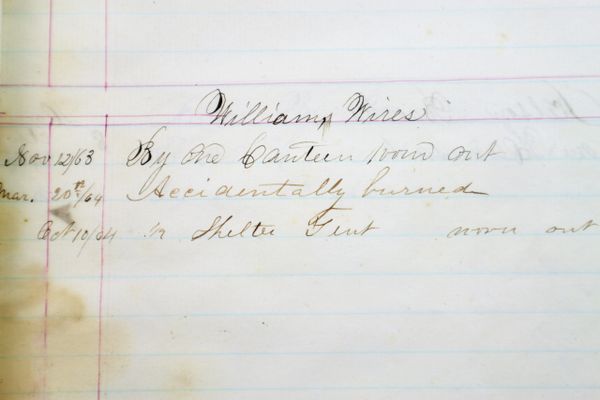 Williams Wires
Nov 12/63 By One Canteen worn out
Mar. 20th/64 Accidentally burned
Oct 10/64 1/2 Shelter Tent worn out